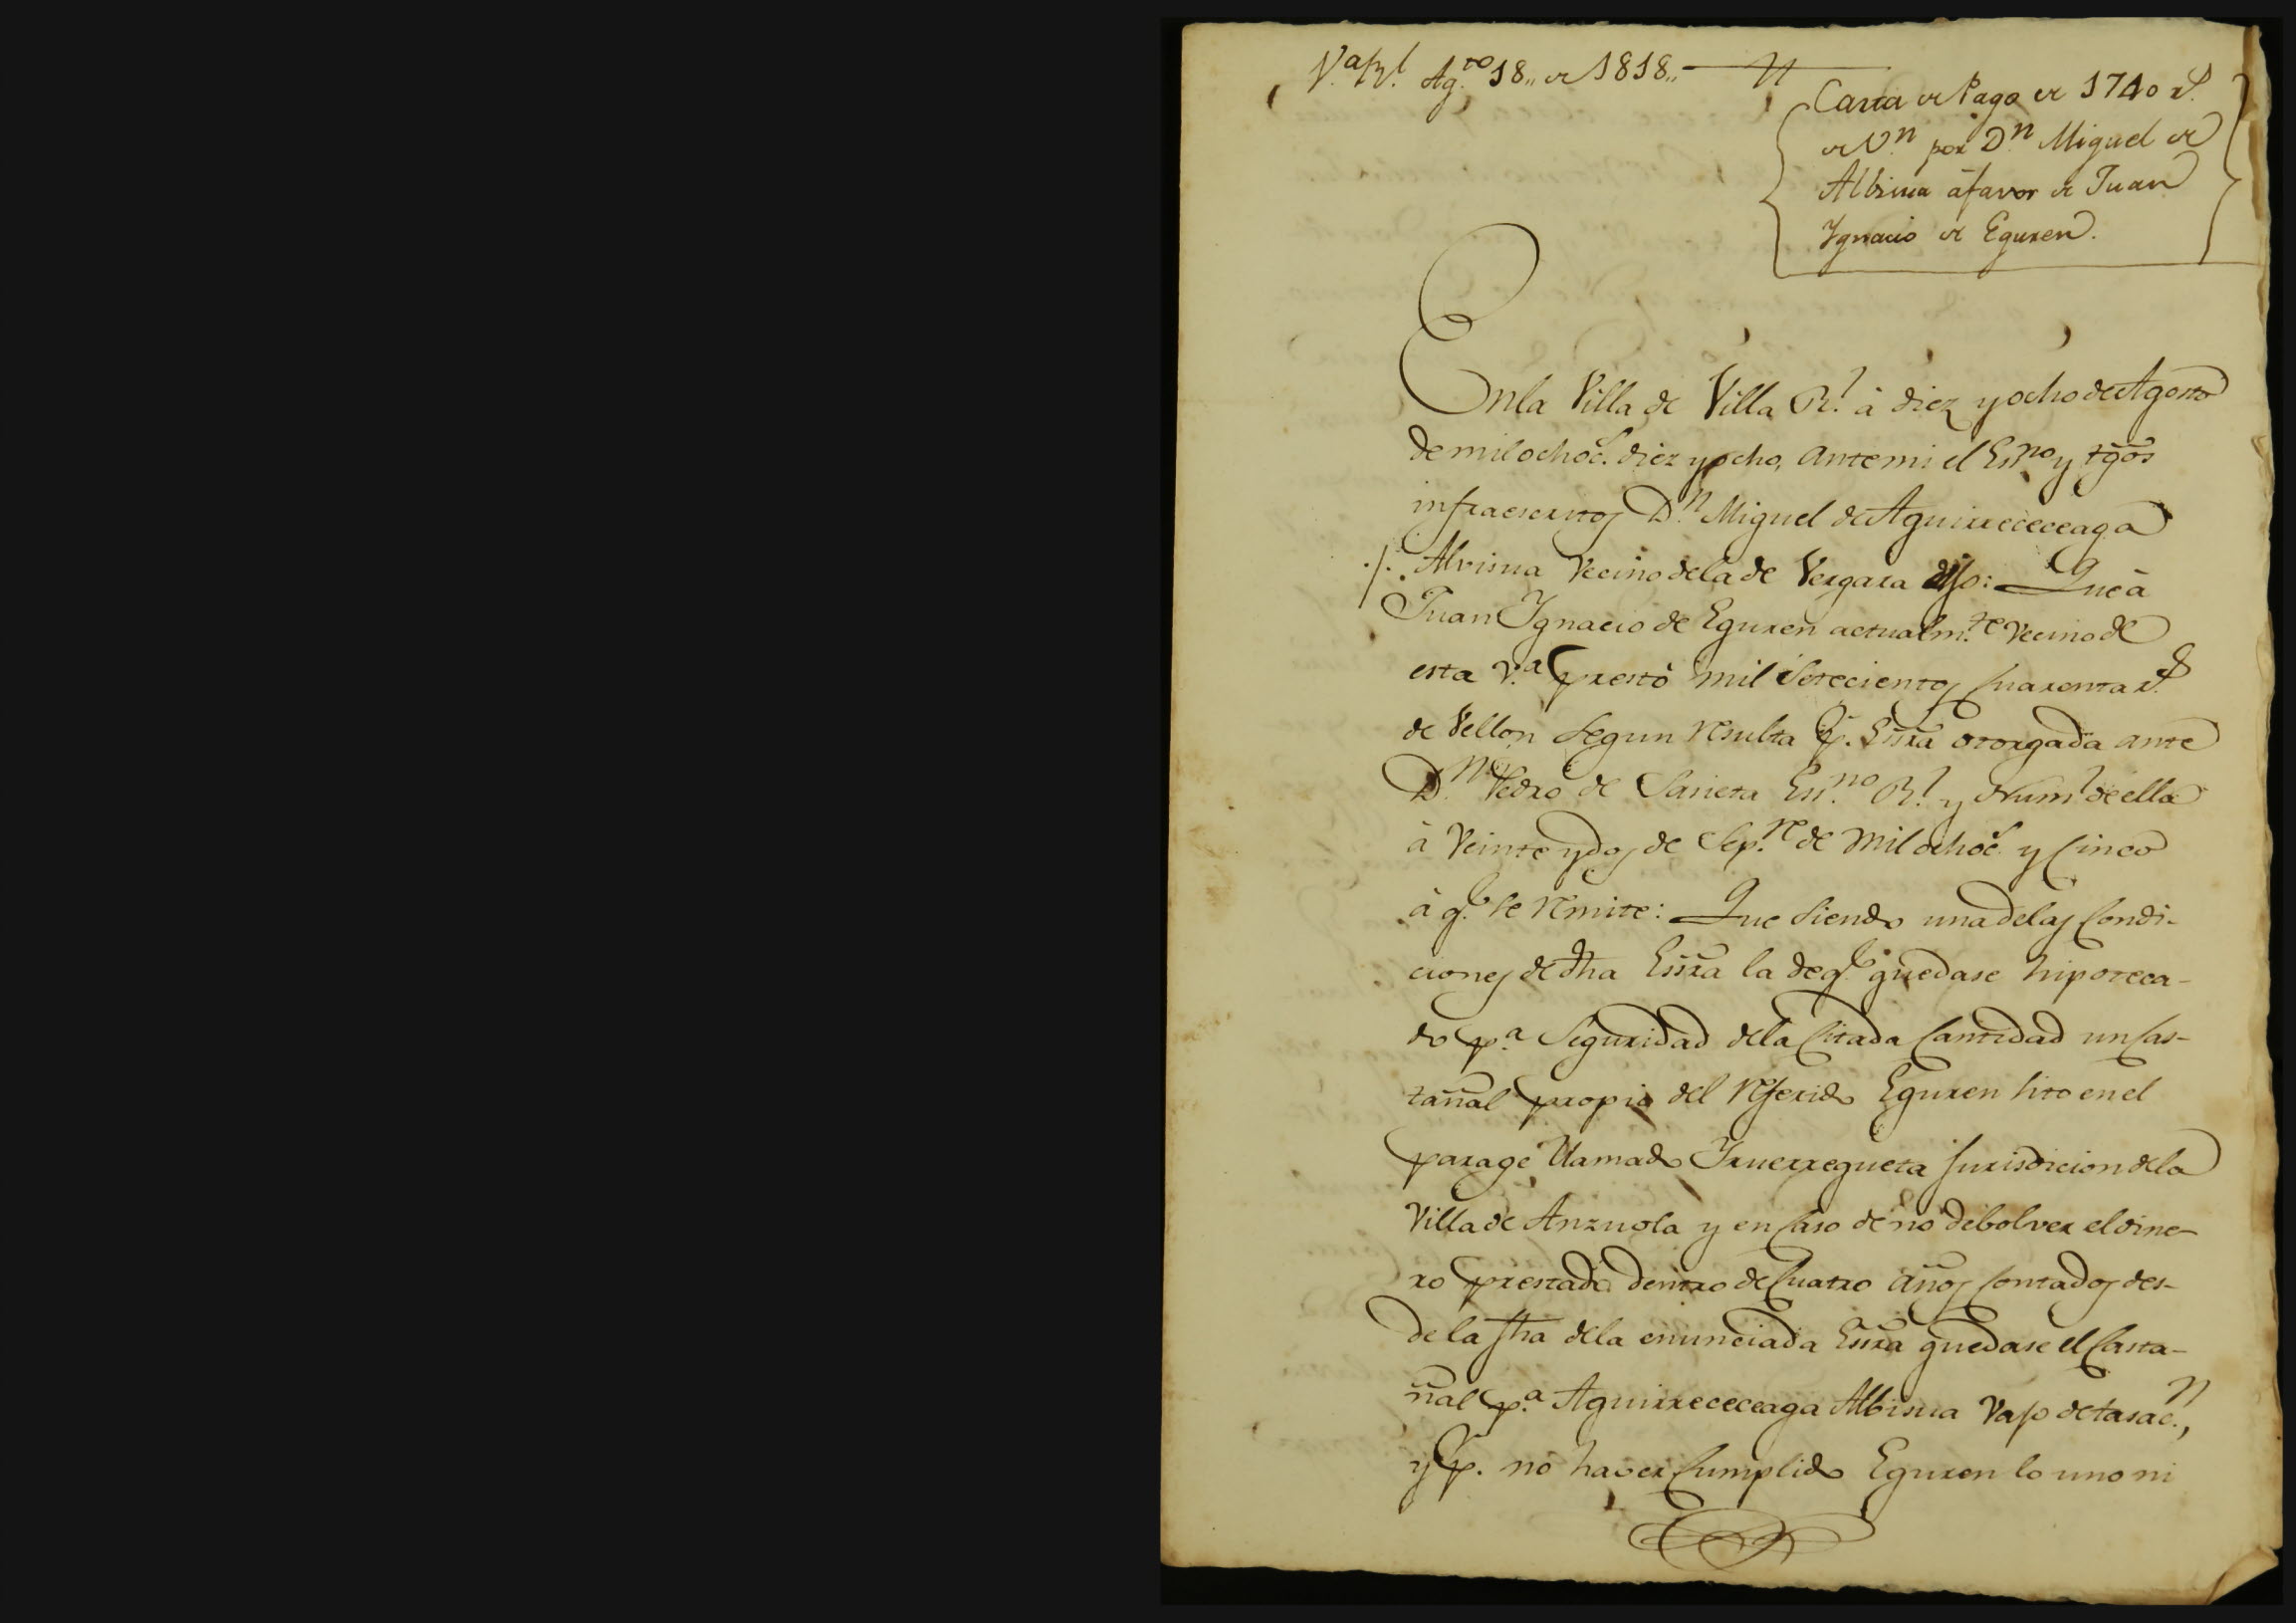 V.ª R.l Ag.to 18,, de 1818,,
Carta de Pago de 1740 r.s
de V.n por D.n Miguel de
Albisua á favor de Juan
Ygnacio de Eguren.
En la Villa de Villa R.l à diez y ocho de Agosto
de mil ochoc.s diez y ocho, ante mi el Es.no y tg̃os
infraescritos D.n Miguel de Aguirrececeaga
Alvisua Vecino de la de Vergara dijo: Que à
Juan Ygnacio de Eguren actualm.te Vecino de
esta V.ª prestó mil Setecientos Cuarenta r.s
de Vellon Segun resulta p.r Essra otorgada ante
D.n Pedro de Sarieta Ess.no R.l y Num.l de ella
à Veinte y dos de Sep.re de mil ochoc.s y Cinco
à q.e se remite: Que Siendo una de las Condi-
ciones de dha Essra la de q.e quedase hipoteca-
do p.a Seguridad de la Citada Cantidad un Cas-
tañal propio del referido Eguren sito en el
parage llamado Yruerregueta Jurisdicion de la
Villa de Anzuola y en Caso de no debolver el dine-
ro prestado dentro de Cuatro años Contados des-
de la fha de la enunciada Essra quedase el Casta-
ñal p.a Aguirrececeaga Albisua Vajo de tasac.n,
y p.r no haver Cumplido Eguren lo uno ni